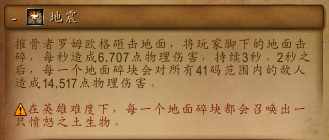 - 地震
推骨者罗姆欧格砸击地面，将玩家脚下的地面击
碎，每秒造成6.707点物理伤害。持续3秒。2秒之
后，每一个地面碎块会对所有41码范围内的敌人
造成14.517点物理伤害。
在英雄难度下，每一个地面碎块都会召唤出一
只愤怒之土生物。